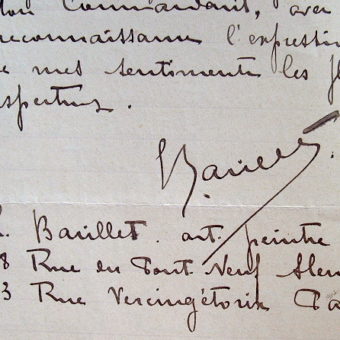 mon Commandant, avec
reconnaissance l'expressi
de mes sentiments les pl
espectueux.
Barillet
L. Barillet. art. peintre
8 Rue du Pont Neuf Alen
3 Rue Vercingétorix Pa